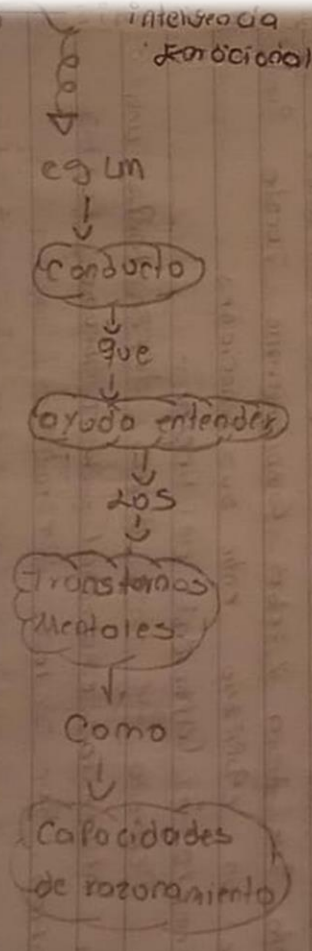 inteligencia
Emocional
es un
Conducto
que
ayuda entender
Los
Transtornos
Mentales
Como
Capacidades
de razonamiento